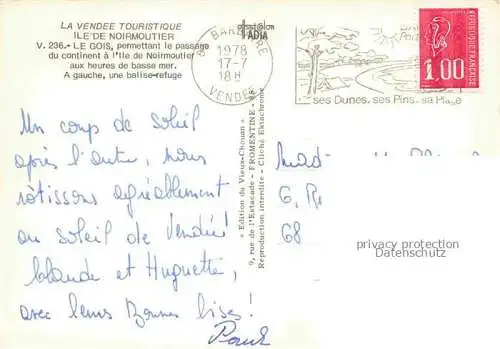 LA VENDEE TOURISTIQUE
ILE DE NOIRMOUTIER
V. 236.- LE GOIS, permettant le passage
du continent à l'Ile de Noirmoutier
aux heures de basse mer.
A gauche, une balise-refuge
1978
17-7
18H
VENDEE
ses Dunes, ses Pins, sa Plage
REPUBLIQUE FRANÇAISE
1,00
Un coup de soleil
après l'autre, nous
rôtissons agréablement
au soleil de Vendée
et Huguette,
avec leurs Bonnes bises!
« Edition du Vieux-Chouan »
9, rue de l'Estacade - FROMENTINE - 85
Reproduction interdite - Cliché Ektachrome
Mad
G. R
68
privacy protection
Datenschutz